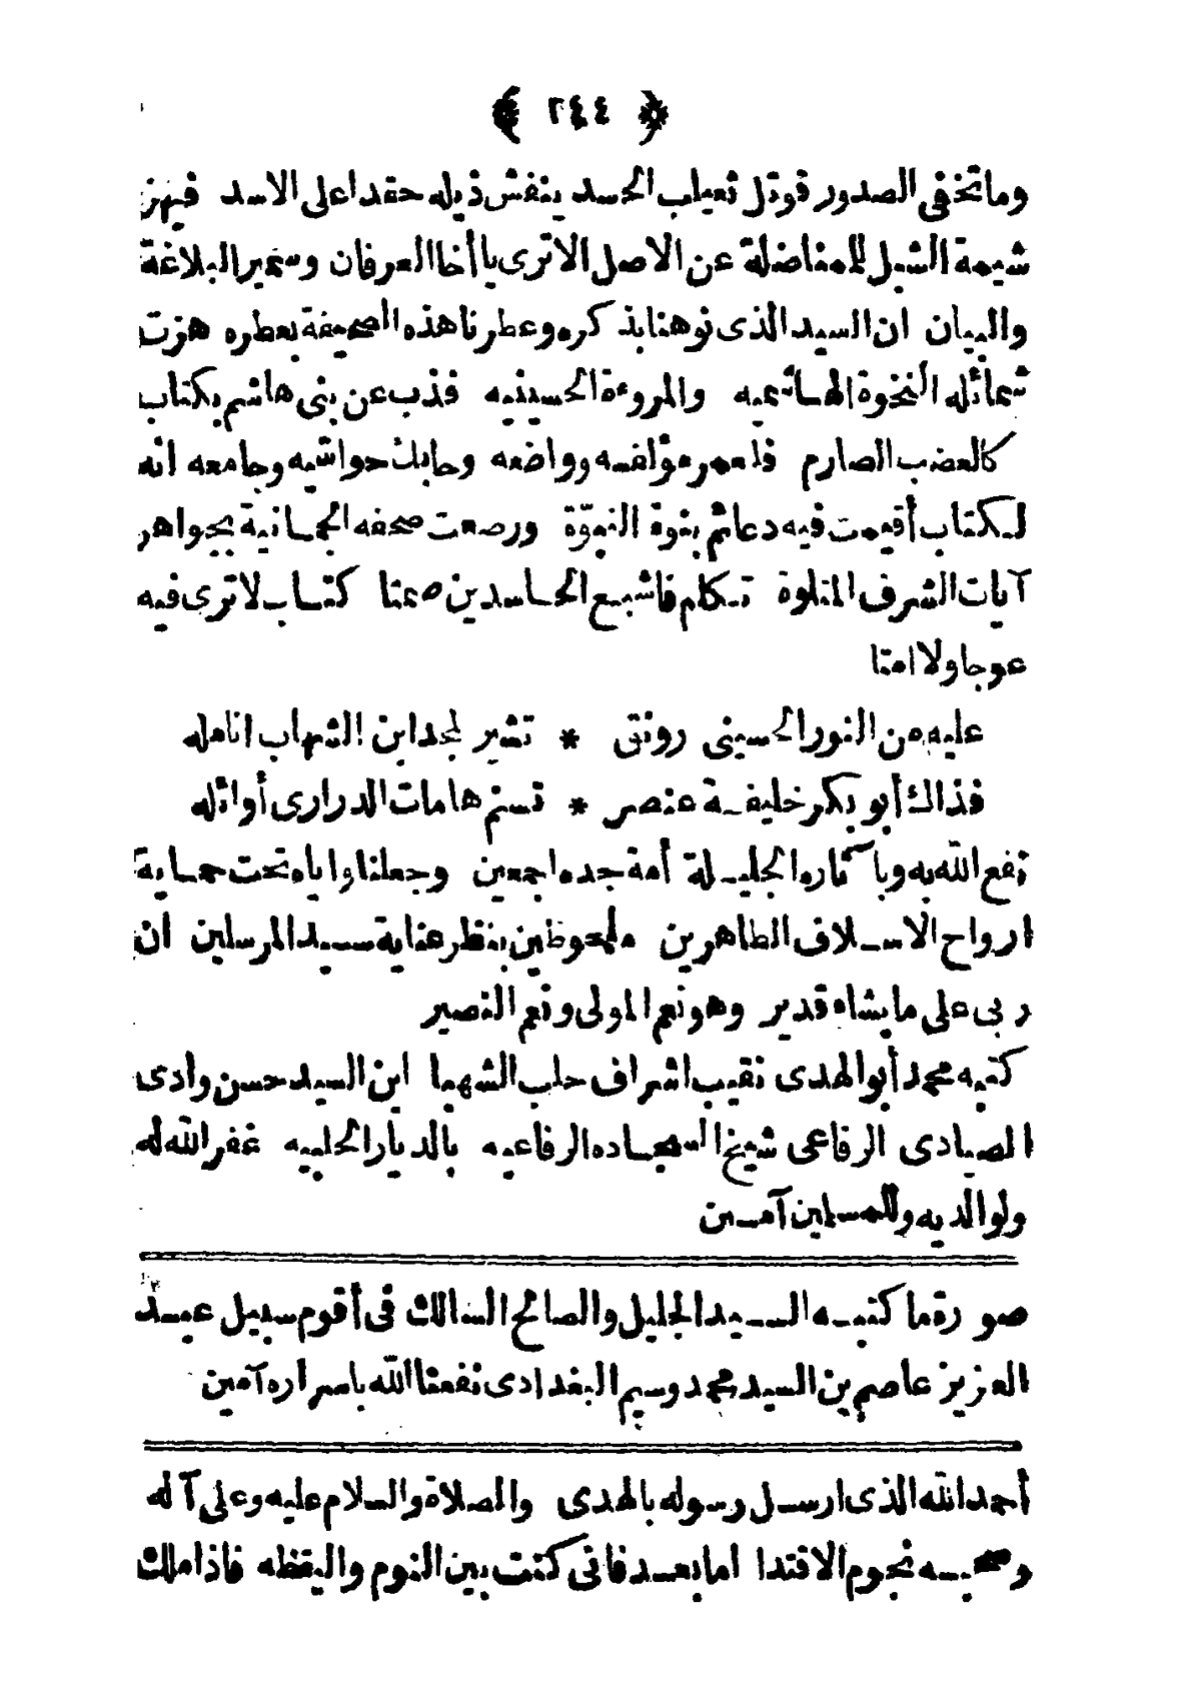 ﴿ ٢٤٤ ﴾
وما تخفى الصدور قوتل ثعيلب الحسد ينفش ذيله حقدا على الاسد فيهز
شيمة الشبل للمناضلة عن الاصل الا ترى يا أخا العرفان وسمير البلاغة
والبيان ان السيد الذى نوهنا بذكره وعطرنا هذه الصحيفة بعطره هزت
شمائله النخوة الهاشميه والمروءة الحسينيه فذب عن بنى هاشم بكتاب
كالعضب الصارم فلعمر مؤلفه وواضعه وحابك حواشيه وجامعه انه
لكتاب أقيمت فيه دعائم بنوة النبوّة ورصعت صحفه الجمانية بجواهر
آيات الشرف المتلوة تكلم فاشبع الحاسدين صمتا كتاب لا ترى فيه
عوجا ولا امتا
عليه من النور الحسينى رونق * تشير لمجد ابن الشهاب انامله
فذاك أبو بكر خليفة عنصر * تسنم هامات الدرارى أوائله
نفع الله به وبآثاره الجليلة أمة جده اجمعين وجعلنا واياه تحت حماية
ارواح الاسلاف الطاهرين ملحوظين بنظر عناية سيد المرسلين ان
ربى على ما يشاء قدير وهو نعم المولى ونعم النصير
كتبه محمد أبو الهدى نقيب اشراف حلب الشهبا ابن السيد حسن وادى
الصيادى الرفاعى شيخ السجاده الرفاعيه بالديار الحلبيه غفر الله له
ولوالديه وللمسلمين آمين
صورة ما كتبه السيد الجليل والصالح السالك فى أقوم سبيل عبد
العزيز عاصم بن السيد محمد وسيم البغدادى نفعنا الله باسراره آمين
أحمد الله الذى ارسل رسوله بالهدى والصلاة والسلام عليه وعلى آله
وصحبه نجوم الاقتدا اما بعد فانى كنت بين النوم واليقظه فاذا ملك